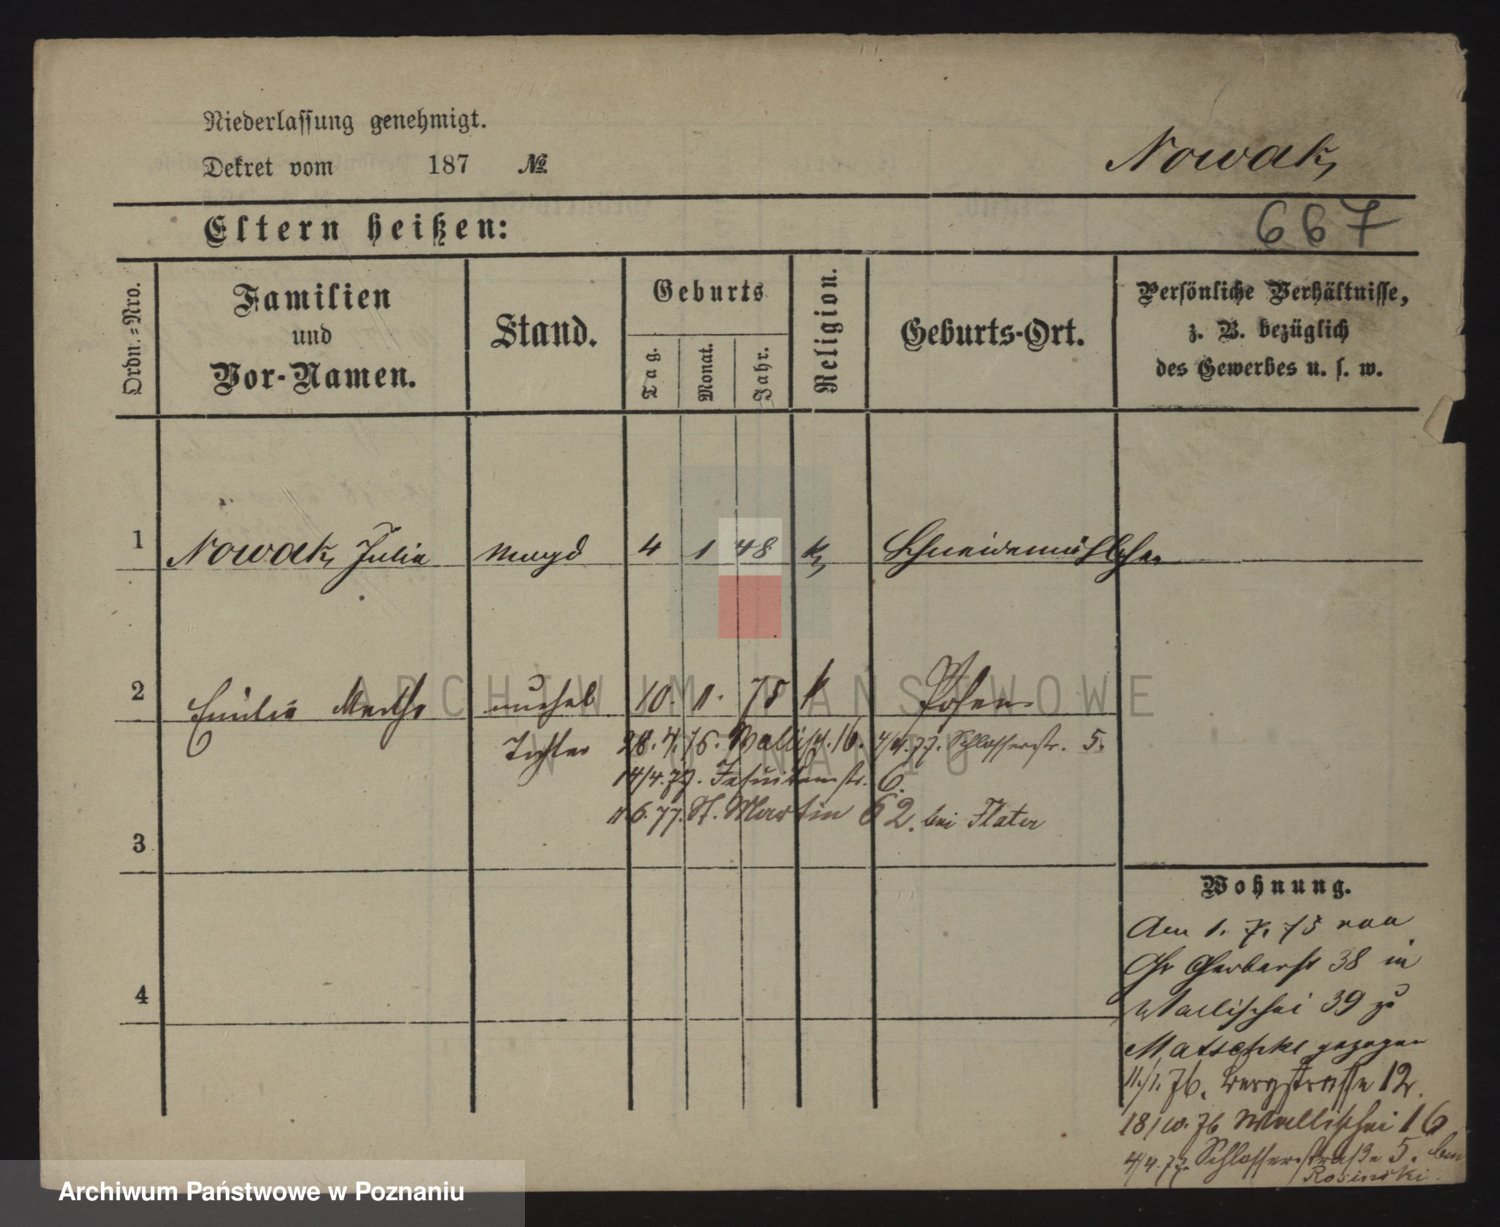 Niederlassung genehmigt.
Dekret vom 187 №
Nowak,
Eltern heißen:
667
Ordn.-Nro.
Familien
und
Vor-Namen.
Stand.
Geburts
Tag.
Monat.
Jahr.
Religion.
Geburts-Ort.
Persönliche Verhältnisse,
z. B. bezüglich
des Gewerbes u. s. w.
1 Nowak, Julia Magd 4 1 48 k Schneidemühlchen
2 Emilie Martha unehel 10. 11. 75 k Posen
Tochter 28. 4. 76. Wallisch. 16. 4/4. 77. Schlosserstr. 5.
14/4. 77. Jesuitenstr. 6.
1. 6. 77. St. Martin 62. bei Flater
3
4
Wohnung.
Am 1. 7. 75 von
Gr Gerberst 38 in
Wallischei 39 zu
Matschke gezogen
11./1. 76. Bergstrasse 12.
18/10. 76 Wallischei 16
4/4. 77. Schlosserstraße 5. bei
Rosinski.
ARCHIWUM PAŃSTWOWE
W POZNANIU
Archiwum Państwowe w Poznaniu